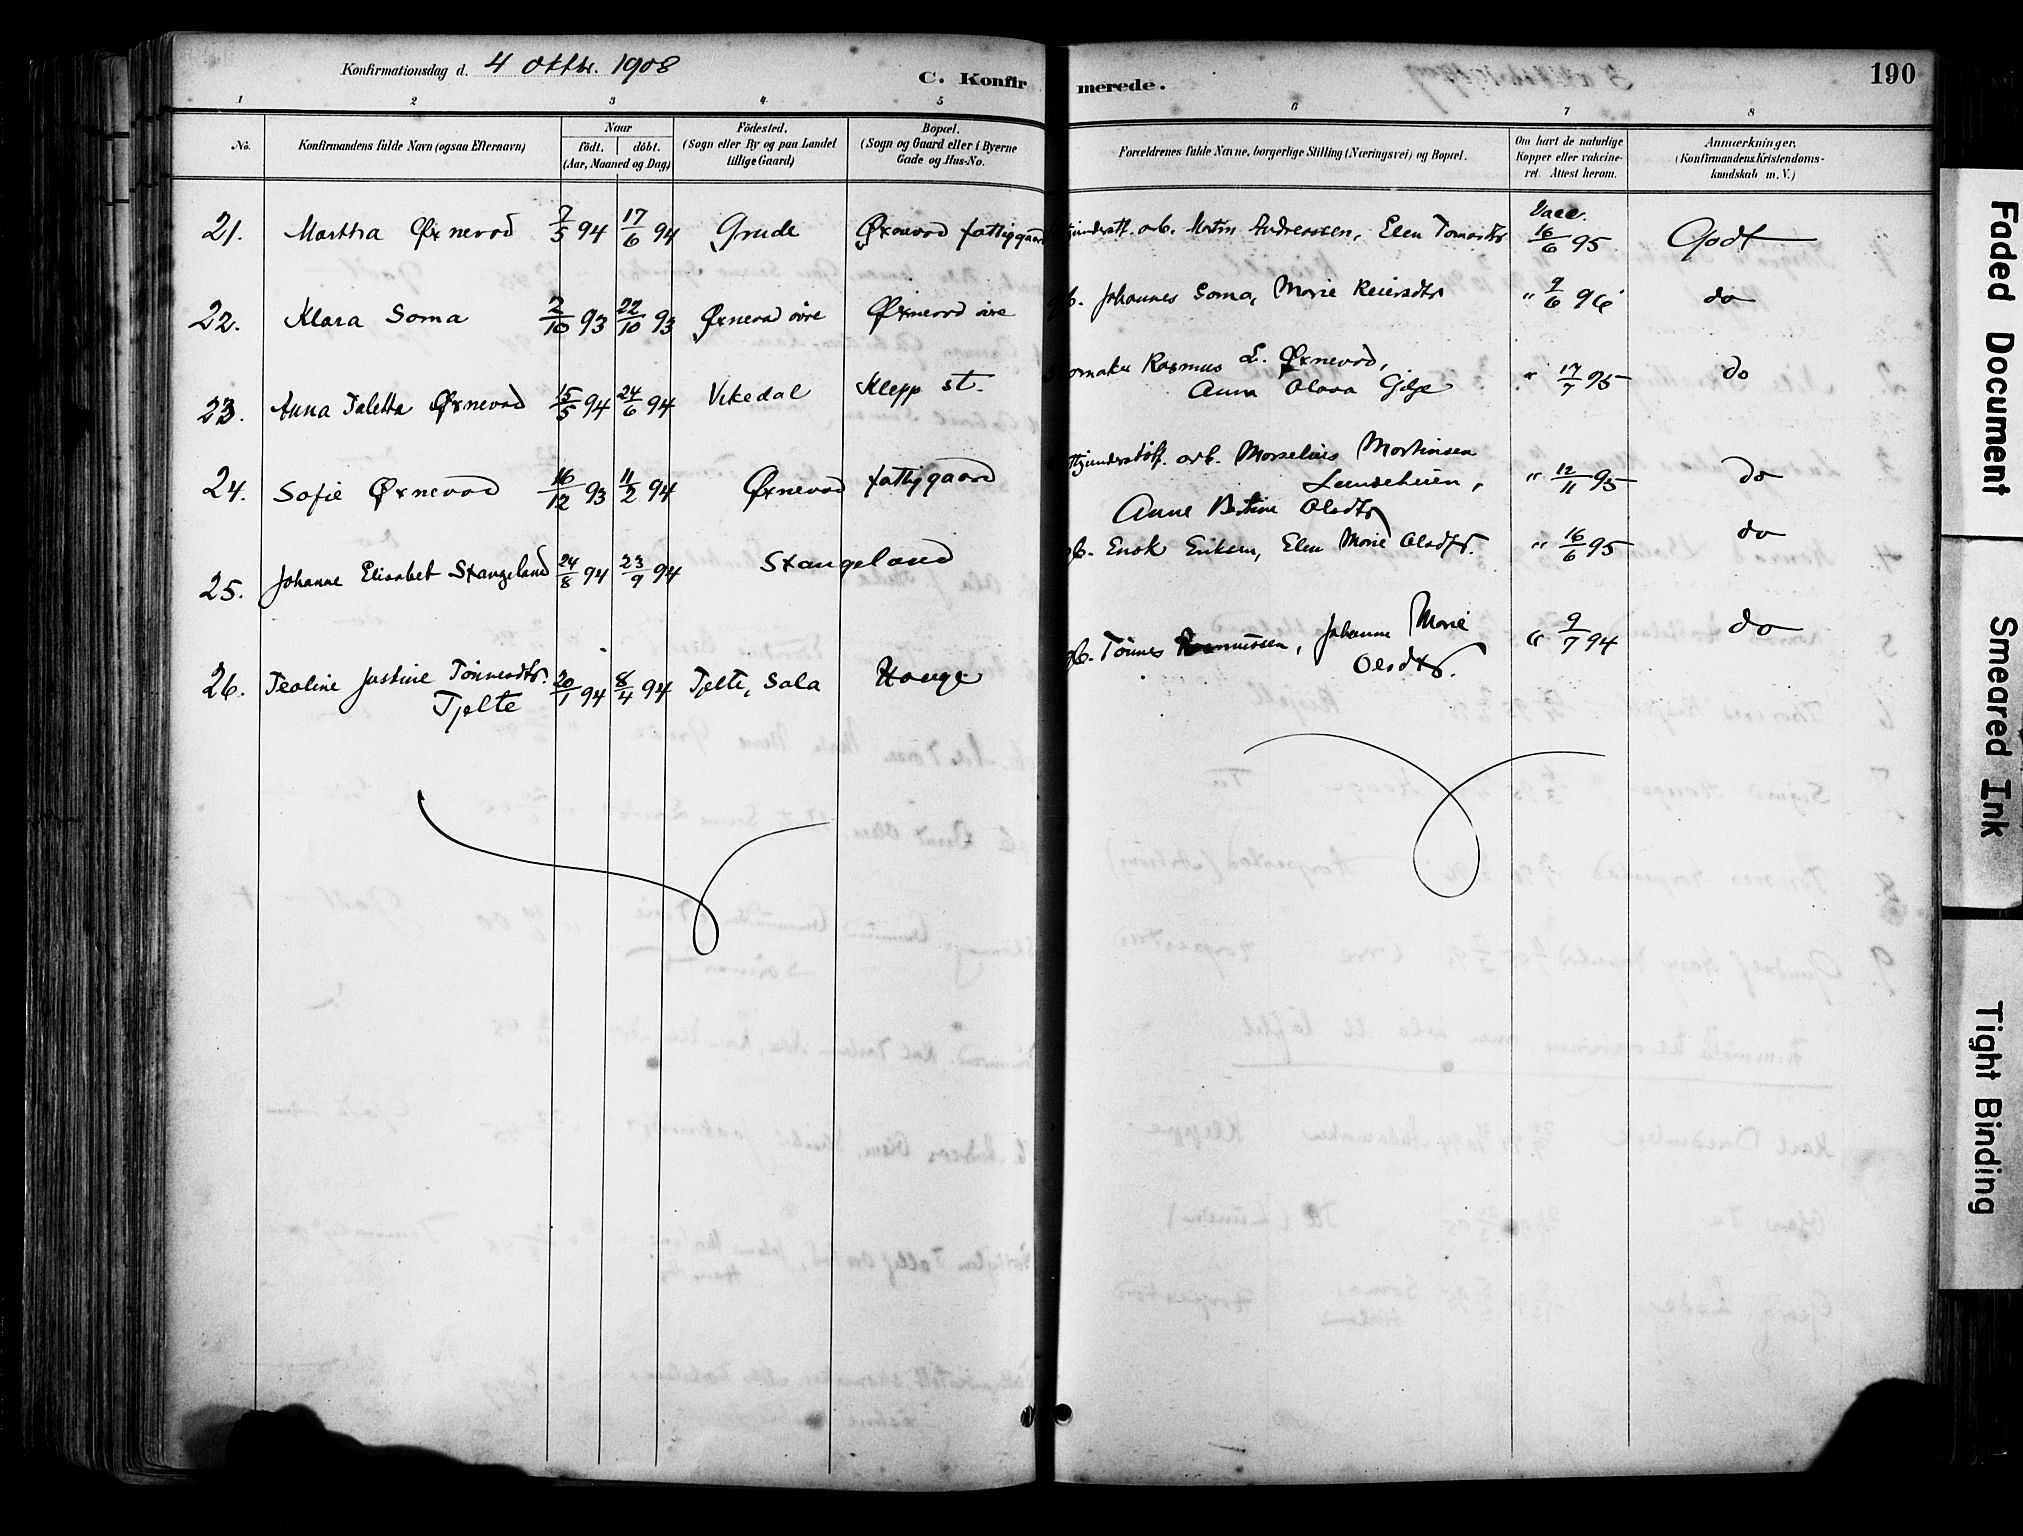 Konfirmationsdag d. 4 Oktbr. 1908
C. Konfirmerede.
190
1 2 3 4 5 6 7 8
No.
Konfirmandens fulde Navn (ogsaa Efternavn)
Naar
födt. döbt.
(Aar, Maaned og Dag)
Födested.
(Sogn eller By og paa Landet
tillige Gaard)
Bopæl.
(Sogn og Gaard eller i Byerne
Gade og Hus-No.
Forældrenes fulde Navne, borgerlige Stilling (Næringsvei) og Bopæl.
Om havt de naturlige
Kopper eller vakcine-
ret. Attest herom.
Anmærkninger.
(Konfirmandens Kristendoms-
kundskab m. V.)
Vacc.
21. Martha Øxnevad 7/5 94 17/6 94 Grude Øxnevad fattiggaard arb. Martin Andreassen, Elen Tomasdtr 16/6 95 Godt
22. Klara Soma 2/10 93 22/10 93 Øxnevad övre Øxnevad övre gb. Johannes Soma, Marie Reiersdtr " 9/6 96 do
23. Anna Taletta Øxnevad 15/5 94 24/6 94 Vikedal Klepp st. Skomaker Rasmus L. Øxnevad,
Anna Olava Gilje " 17/7 95 do
24. Sofie Øxnevad 16/12 93 11/2 94 Øxnevad fattiggaard arb. Marselius Martinsen
Lundeheien,
Anne Bertine Olsdtr " 12/11 95 do
25. Johanne Elisabet Stangeland 24/8 94 23/9 94 Stangeland gb. Enok Eriksen, Elen Marie Olsdtr. " 16/6 95 do
26. Teoline Justine Tönnesdtr.
Tjelte 20/1 94 8/4 94 Tjelte, Sola Hauge gb. Tönnes Rasmussen, Johanne Marie
Olsdtr. " 9/7 94 do
Faded Document
Smeared Ink
Tight Binding